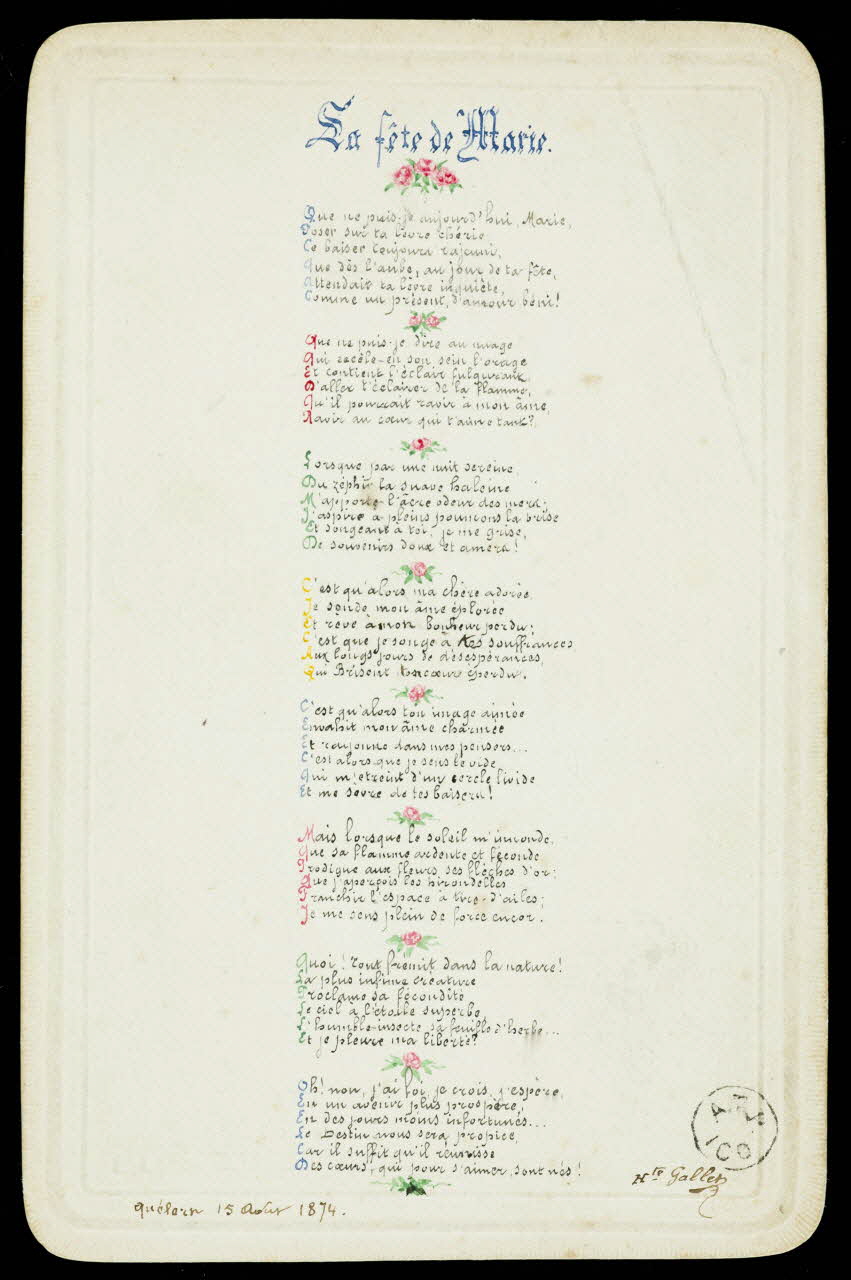 La fête de Marie.
Que ne puis-je aujourd'hui, Marie,
Poser sur ta lèvre chérie
Ce baiser toujours rajeuni,
Que dès l'aube, au jour de ta fête,
Attendait ta lèvre inquiète,
Comme un présent, d'amour béni!
Que ne puis-je dire au nuage
Qui recèle en son sein l'orage
Et contient l'éclair fulgurant,
D'aller t'éclairer de la flamme,
Qu'il pourrait ravir à mon âme,
Ravir au cœur qui t'aime tant?
Lorsque par une nuit sereine
Du zéphir la suave haleine
M'apporte l'âcre odeur des mers;
J'aspire à pleins poumons la brise
Et songeant à toi, je me grise,
De souvenirs doux et amers!
C'est qu'alors ma chère adorée
Je sonde mon âme éplorée
Et rêve à mon bonheur perdu;
C'est que je songe à tes souffrances
Aux longs jours de désespérances,
Qui Brisent ton cœur éperdu.
C'est qu'alors ton image aimée
Envahit mon âme charmée
Et rayonne dans mes pensers...
C'est alors que je sens le vide
Qui m'etreint d'un cercle livide
Et me sèvre de tes baisers!
Mais lorsque le soleil m'inonde,
Que sa flamme ardente et féconde
Prodigue aux fleurs ses flèches d'or;
Que j'aperçois les hirondelles
Franchir l'espace à tire-d'ailes;
Je me sens plein de force encor.
Quoi! Tout frémit dans la nature!
La plus infime créature
Proclame sa fécondité
Le ciel à l'étoile superbe,
L'humble insecte sa feuille d'herbe...
Et je pleure ma liberté?
Oh! non, j'ai foi, je crois, j'espère,
En un avenir plus prospère,
En des jours moins infortunés...
Le Destin nous sera propice,
Car il suffit qu'il réunisse
Des cœurs, qui pour s'aimer, sont nés!
Hte Gallet
Quélern 15 Août 1874.